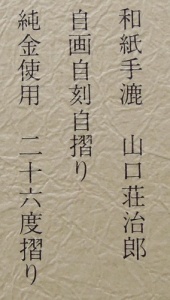 和紙手漉　山口荘治郎
自画自刻自摺り
純金使用　二十六度摺り